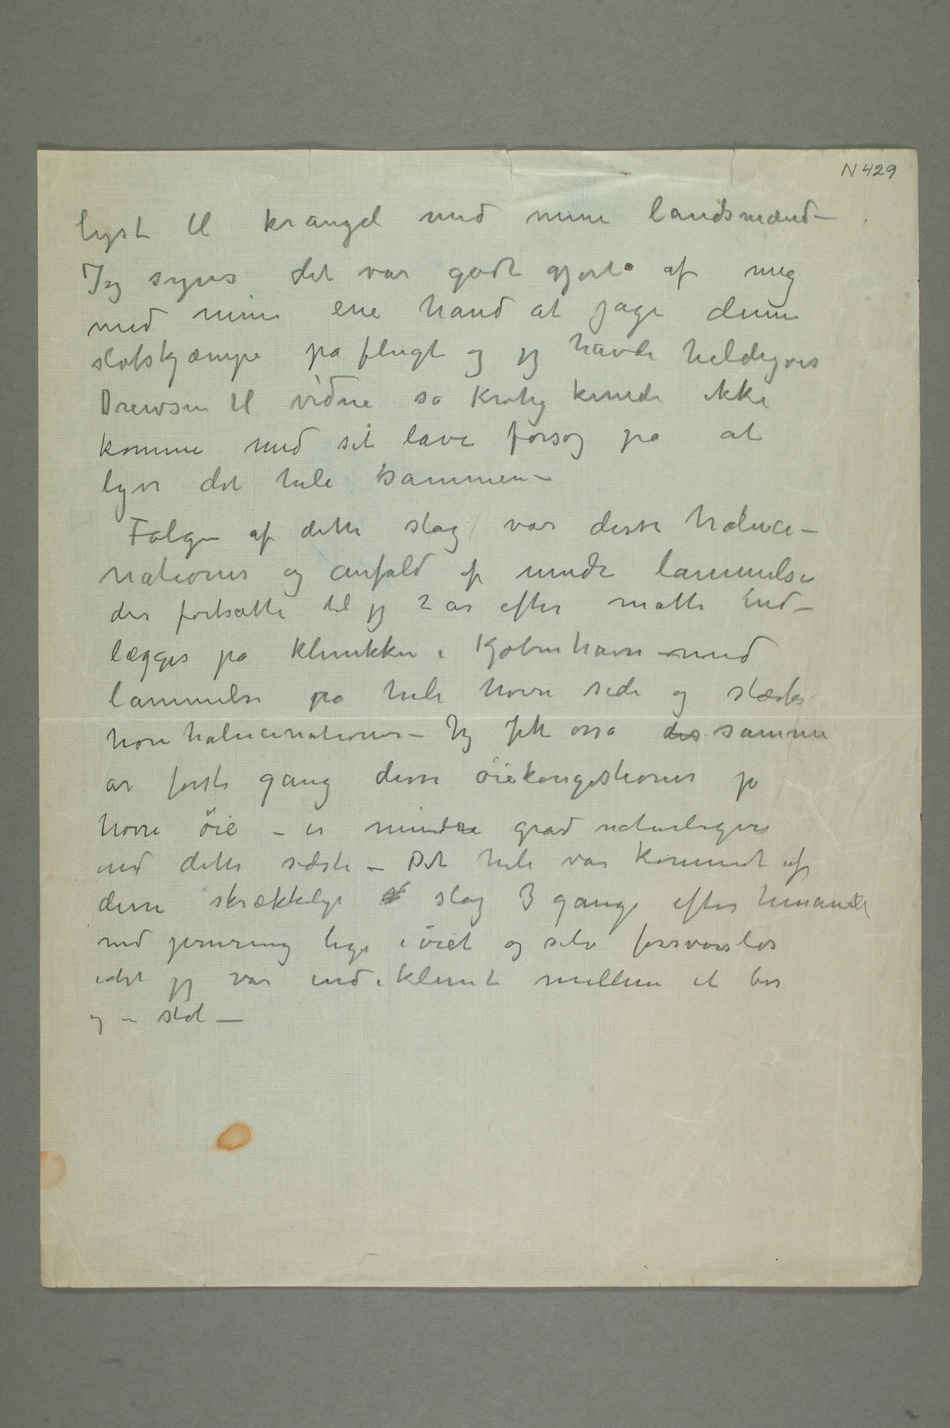 N 429
lyst til krangel med mine landsmænd –
Jeg synes det var godt gjort af mig
med min ene hånd at jage denne
slotskjæmpe på flugt og jeg havde heldigvis
Drewsen til vidne så Krohg kunde ikke
komme med sit lave forsøg på at
lyve det hele sammen –
Følgen af dette slag var disse haluci–
nationer og anfald af mindre lammelse
der fortsatte til jeg 2 år efter måtte ind–
lægges på klinikken i Kjøbenhavn med
lammelse på hele høire side og stærke
høre halucinationer – Jeg fik også des samme
år første gang disse öiekongestioner på
høire öie – i mindre grad naturligvis
end dette sidste – Det hele var kommet af
disse skrækkelige slag 3 gange efter hinanden
med jernring lige i öiet og selv forsvarsløs
idet jeg var indeklemt mellem et bor
og en stol –